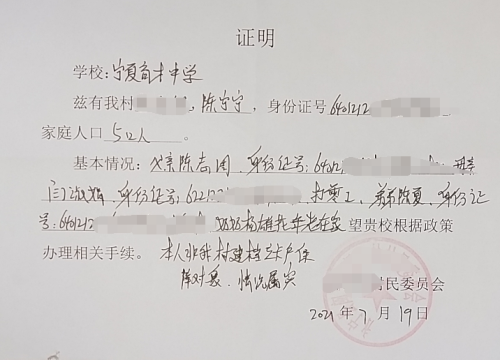 证明
学校:宁夏育才中学
兹有我村 陈宁宁,身份证号 640122
家庭人口 5口人 。
基本情况:父亲陈志国,身份证号:640 母亲
身份证号:6221 打零工,弟弟陈夏,身份证
号:640122 望贵校根据政策
办理相关手续。本人非我村建档立卡户
情况属实
村民委员会
2021年7月19日